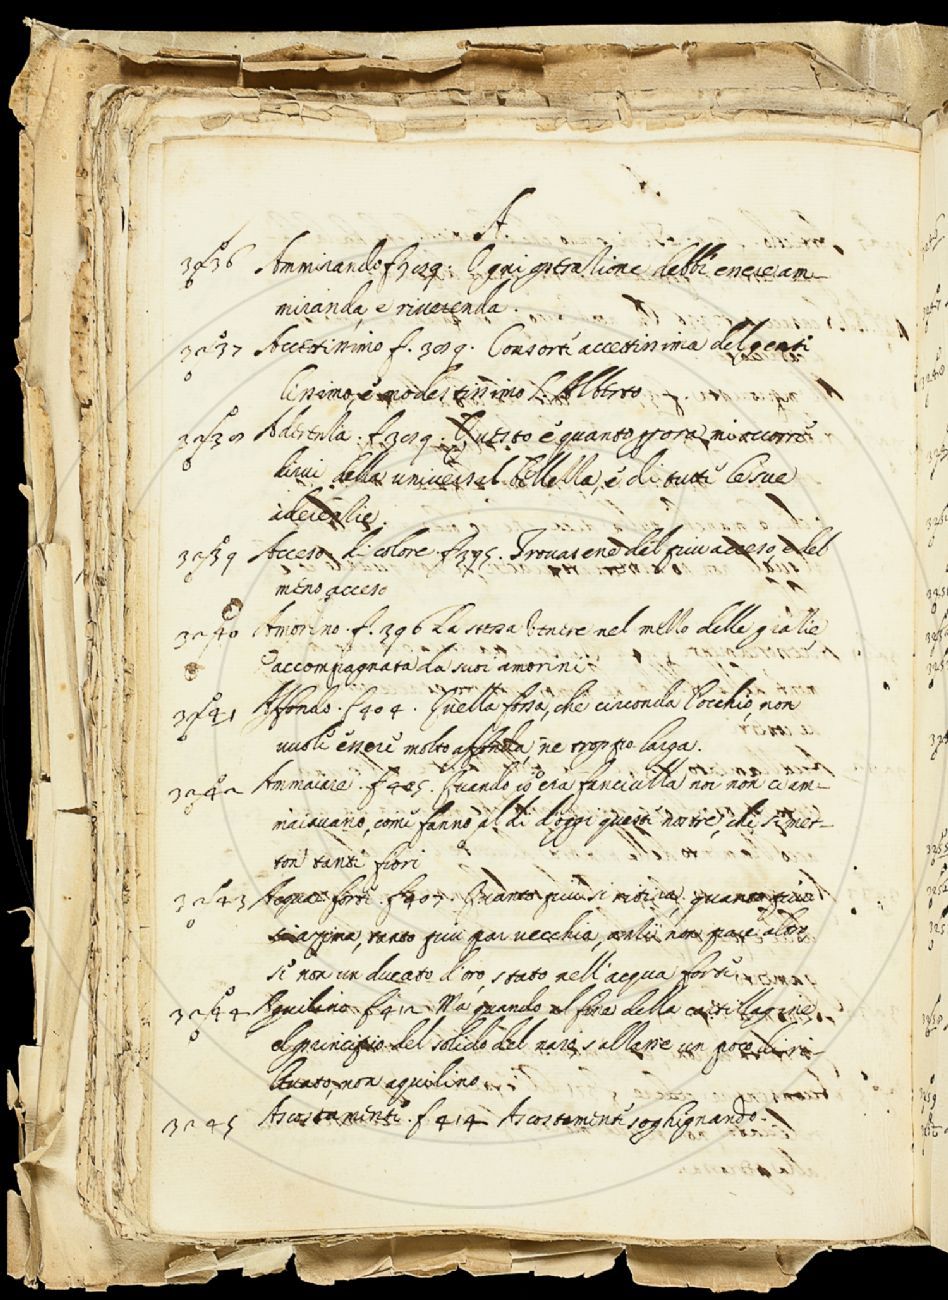 A
3236 Ammirando f 389. Ogni gestatione debb' essere am-
miranda, e riverenda.
3237 Accettissimo f. 389. Consorte accettissima del genti
lissimo, e modestissimo S. Alberto
3238 Aderenza. f 389. Questo è quanto
dirvi della universal bellezza, e di tutte le sue
aderenzie.
3239 Acceso di colore f 395. Trovasene del piu acceso, e del
meno acceso
3240 Amorino. f. 396 La stessa Venere nel mezzo delle gratie
accompagnata da suoi amorini
3241 Affondo. f 404. Quella fossa, che circonda l'occhio, non
vuole essere molto affonda, ne troppo larga.
3242 Ammaiare. f 405. Quando io era fanciulla noi non ci am-
maiavamo, come fanno al dì d'oggi queste nostre, che si met-
ton tanti fiori
3243 Acqua forte. f 407. Quanto piu si, quanto piu
, tanto piu par vecchia, anzi non pare altro
se non un ducato d'oro, stato nell'acqua forte.
3244 Aquilino f 412 Ma quando al fine della cartillagine
el principio del solido del naso s'alzasse un poco di ri-
levato, non aquilino
3245 Ascostamente. f 414 Ascostamente soghignando.